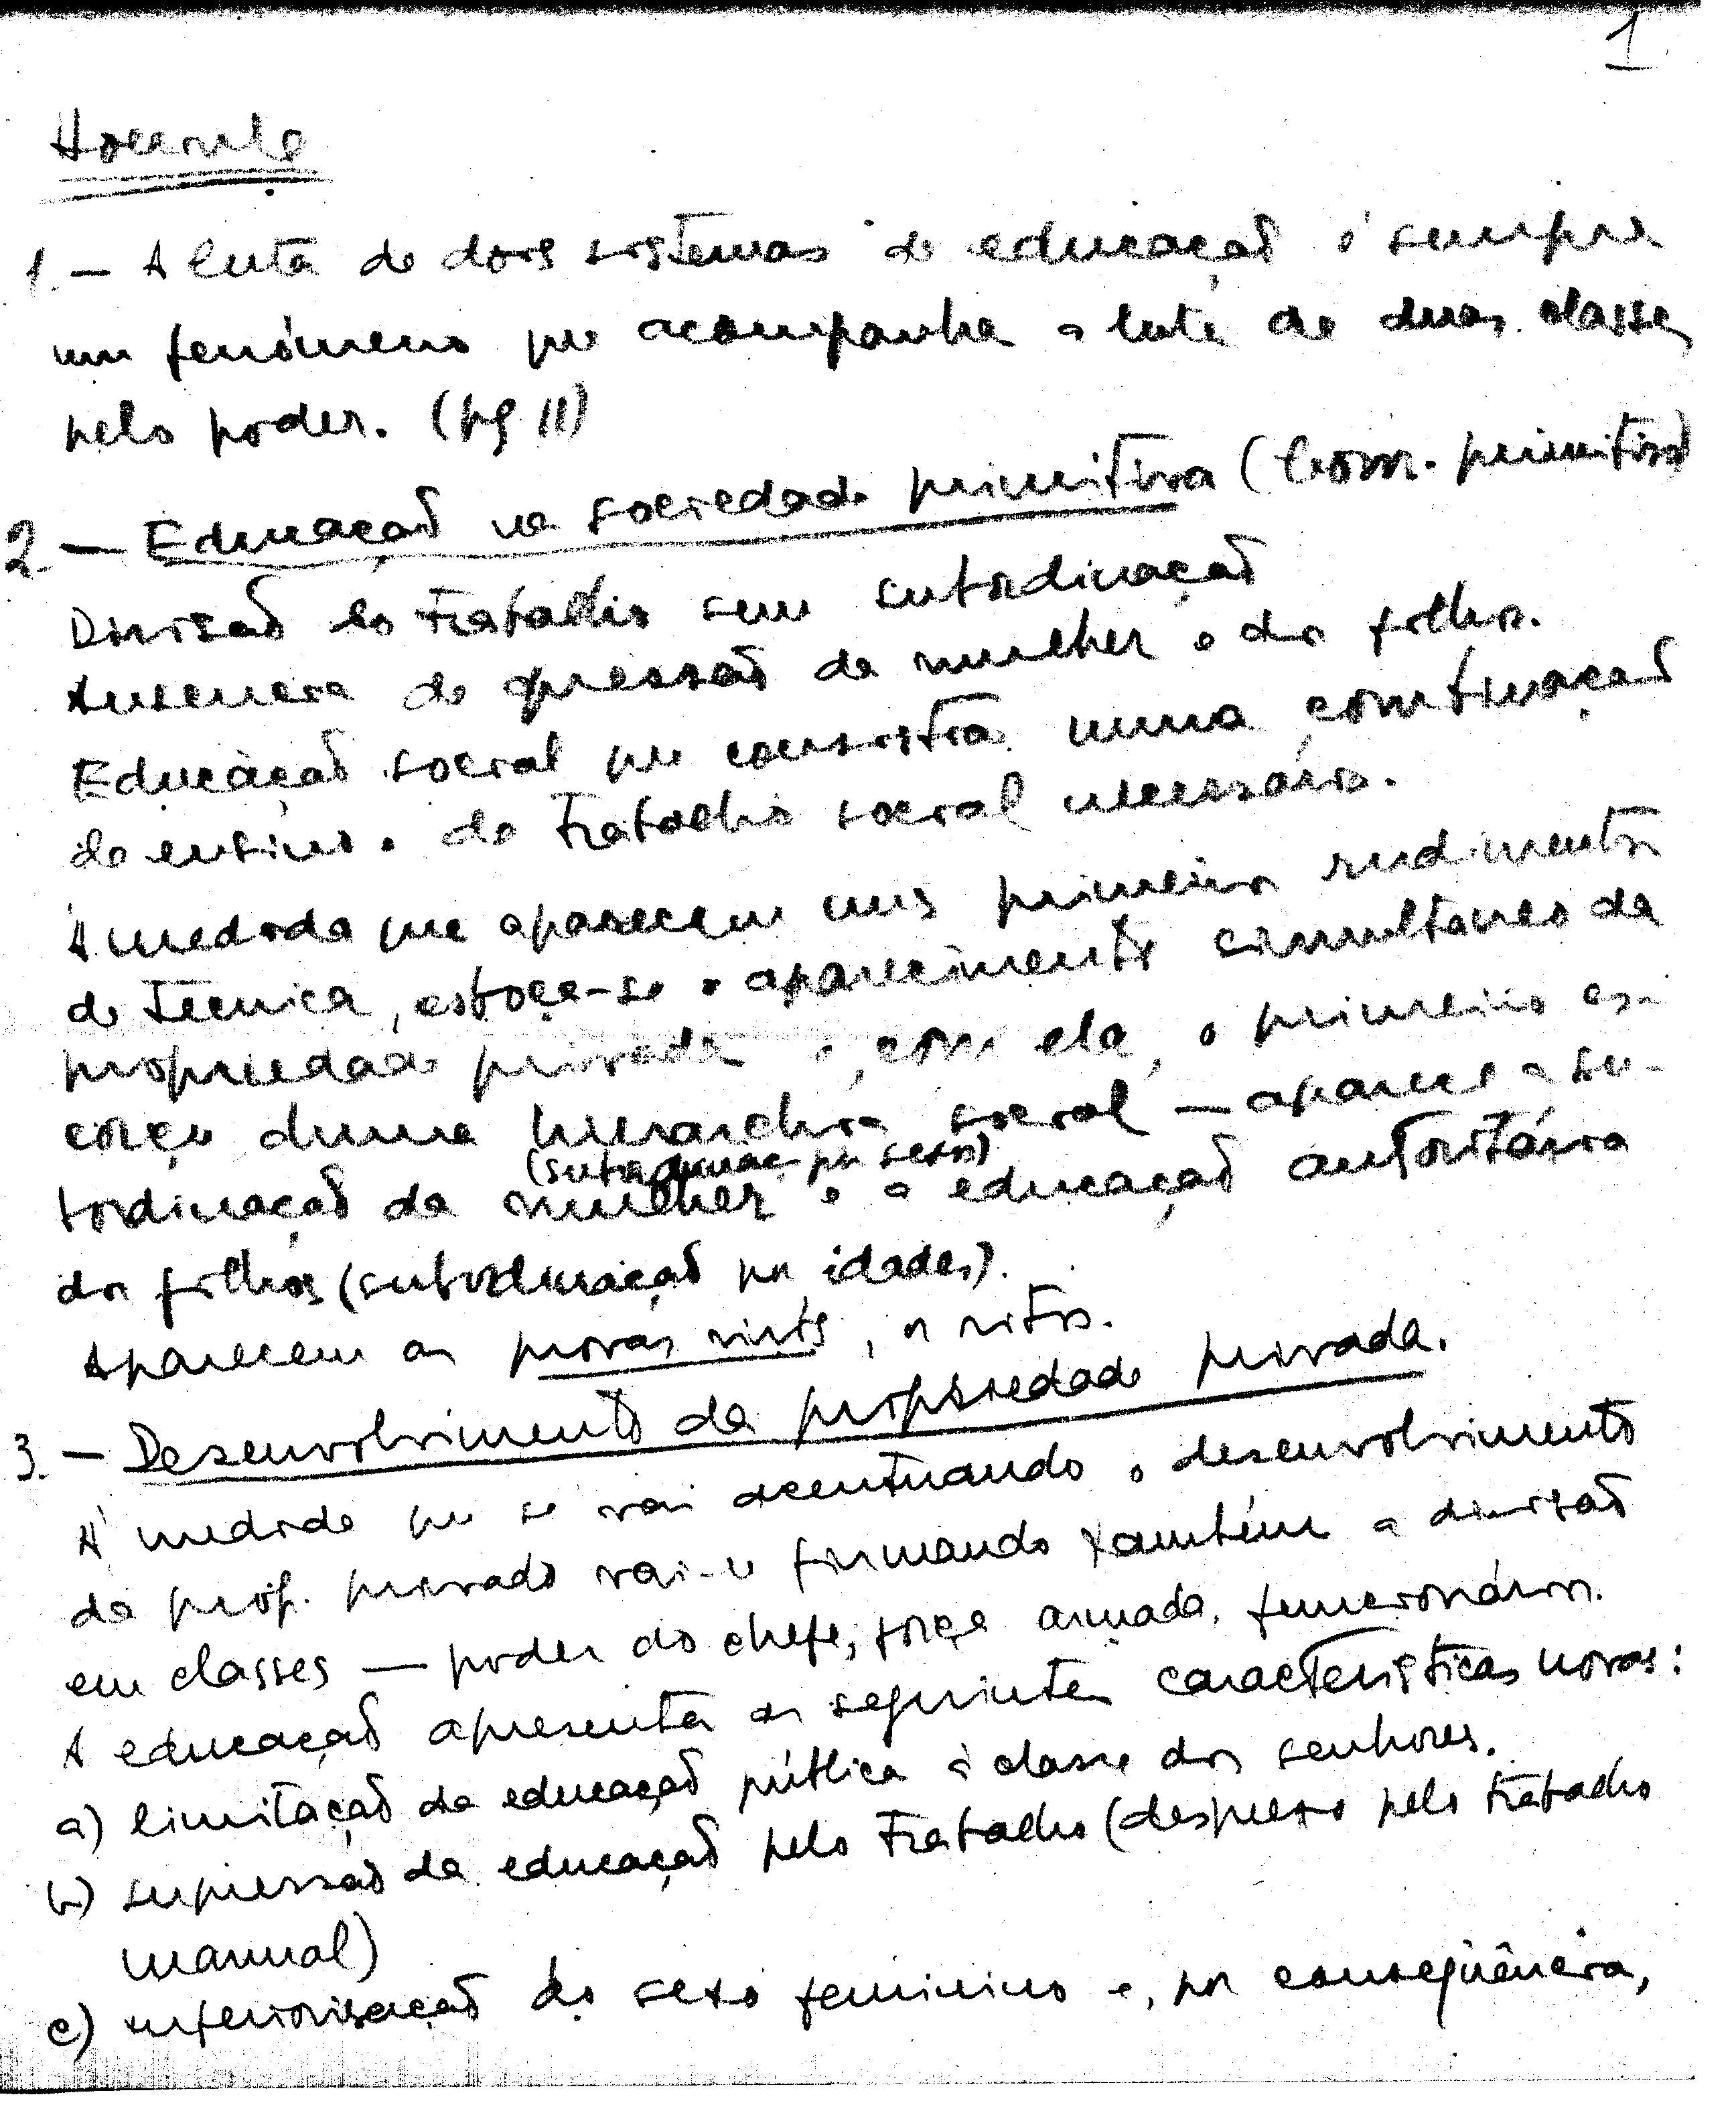 1
Hoernle
1. – A luta de dois sistemas de educação é sempre
um fenómeno que acompanha a luta de duas classes
pelo poder. (pg 11)
2. – Educação na sociedade primitiva (Com. primitivo)
Divisão do trabalho sem subordinação
Ausencia de opressão da mulher e dos filhos.
Educação social que consistia numa combinação
do ensino e do trabalho social necessário.
À medida que aparecem uns primeiros rudimentos
de técnica, esboça-se o aparecimento simultaneo da
propriedade privada e, com ela, o primeiro es-
corço duma hierarchia social – aparece a su-
(subordinaç. por sexos)
bordinação da mulher e a educação autoritária
dos filhos (subordinação por idades).
Aparecem as provas, os ritos.
3. – Desenvolvimento da propriedade privada.
À medida que se vai acentuando o desenvolvimento
da prop. privada vai-se firmando também a divisão
em classes – poder do chefe, força armada, funcionários.
A educação apresenta as seguintes características novas:
a) limitação da educação pública à classe dos senhores.
b) supressão da educação pelo trabalho (desprezo pelo trabalho
manual)
c) inferiorisação do sexo feminino e, por conseqüência,